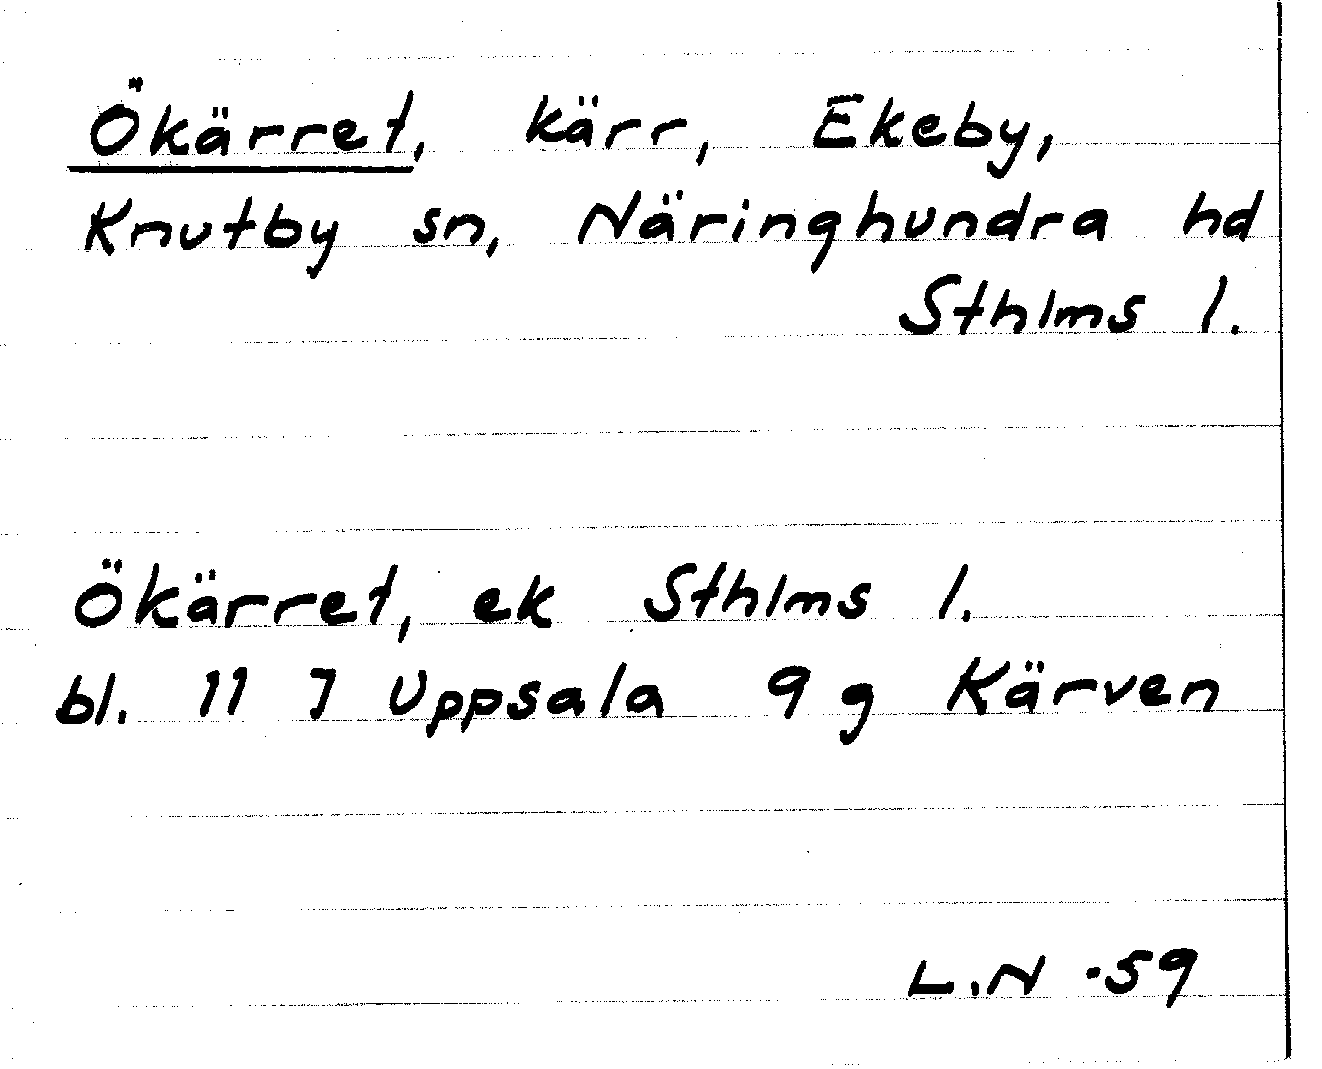 Ökärret, kärr, Ekeby,
Knutby sn, Näringhundra hd
Sthlms l.
Ökärret, ek Sthlms l.
bl. 11 J Uppsala 9 g Kärven
L.N -59